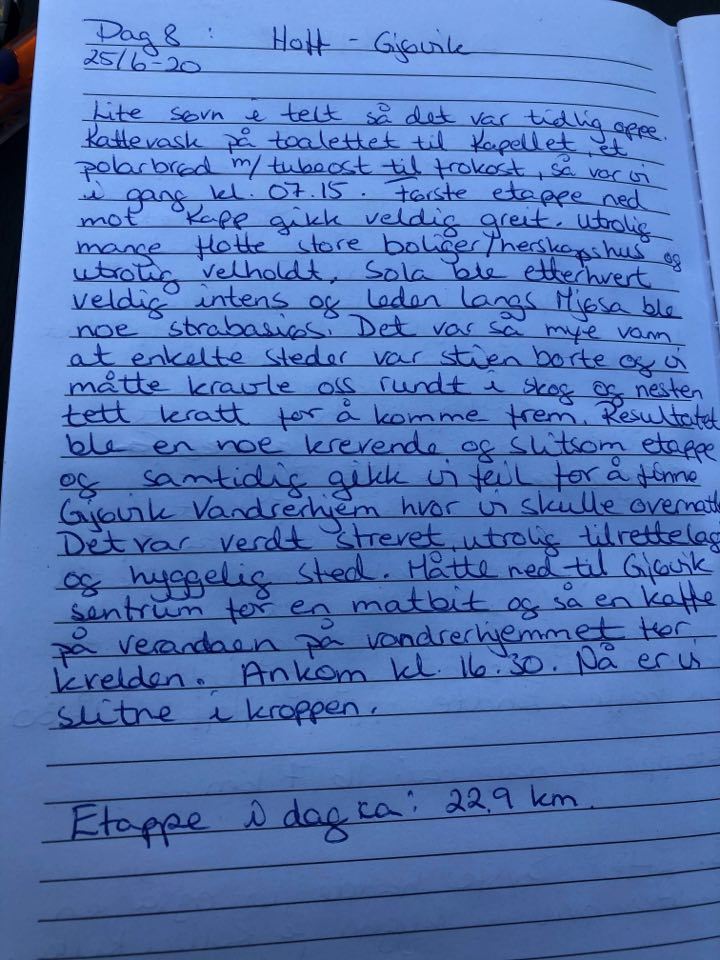 Dag 8 : Hoff - Gjøvik
25/6-20
Lite søvn i telt så det var tidlig oppe.
Kattevask på toalettet til Kapellet, et
polarbrød m/tubeost til frokost, så var vi
i gang kl. 07.15. Første etappe ned
mot Kapp gikk veldig greit. Utrolig
mange flotte store boliger/herskapshus og
utrolig velholdt. Sola ble etterhvert
veldig intens og leden langs Mjøsa ble
noe strabasiøs. Det var så mye vann,
at enkelte steder var stien borte og vi
måtte kravle oss rundt i skog og nesten
tett kratt for å komme frem. Resultatet
ble en noe krevende og slitsom etappe
og samtidig gikk vi feil for å finne
Gjøvik Vandrerhjem hvor vi skulle overnatte
Det var verdt strevet, utrolig tilrettelag
og hyggelig sted. Måtte ned til Gjøvik
sentrum for en matbit og så en kaffe
på verandaen på vandrerhjemmet før
kvelden. Ankom kl. 16.30. Nå er vi
slitne i kroppen.
Etappe i dag ca: 22,9 km.